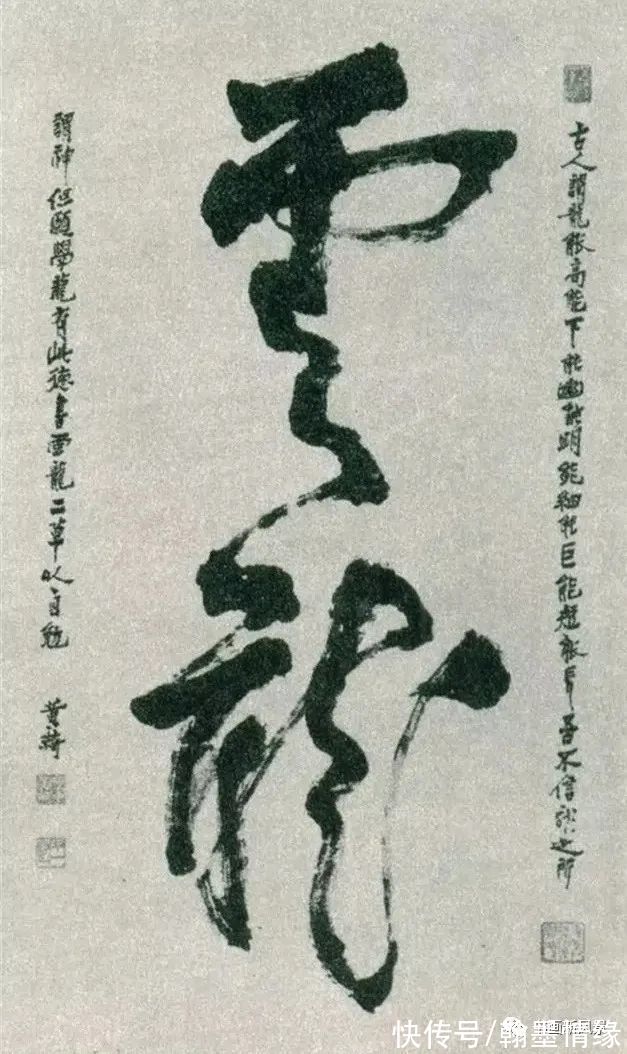 古人謂龍能高能下能幽能明能細能巨能短能長吾不信龍之所
雲龍
謂神但願學龍有此德書雲龍二草以自勉
黃綺
快传号/翰墨情缘